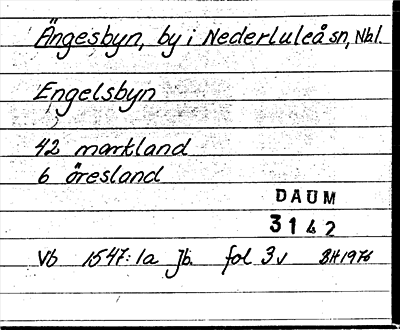 Ängesbyn, by i Nederluleå sn, Nbl.
Engelsbyn
42 markland
6 öresland
DAUM
3142
Vb 1547:1a Jb. fol 3v BH1976